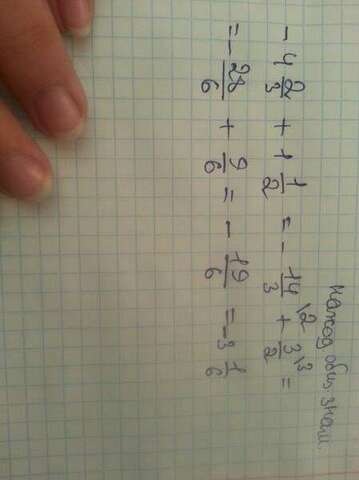 наход общ. знам.
- 4 2/3 + 1 1/2 = - 14/3 \2 + 3/2 \3 =
= - 28/6 + 9/6 = - 19/6 = -3 1/6